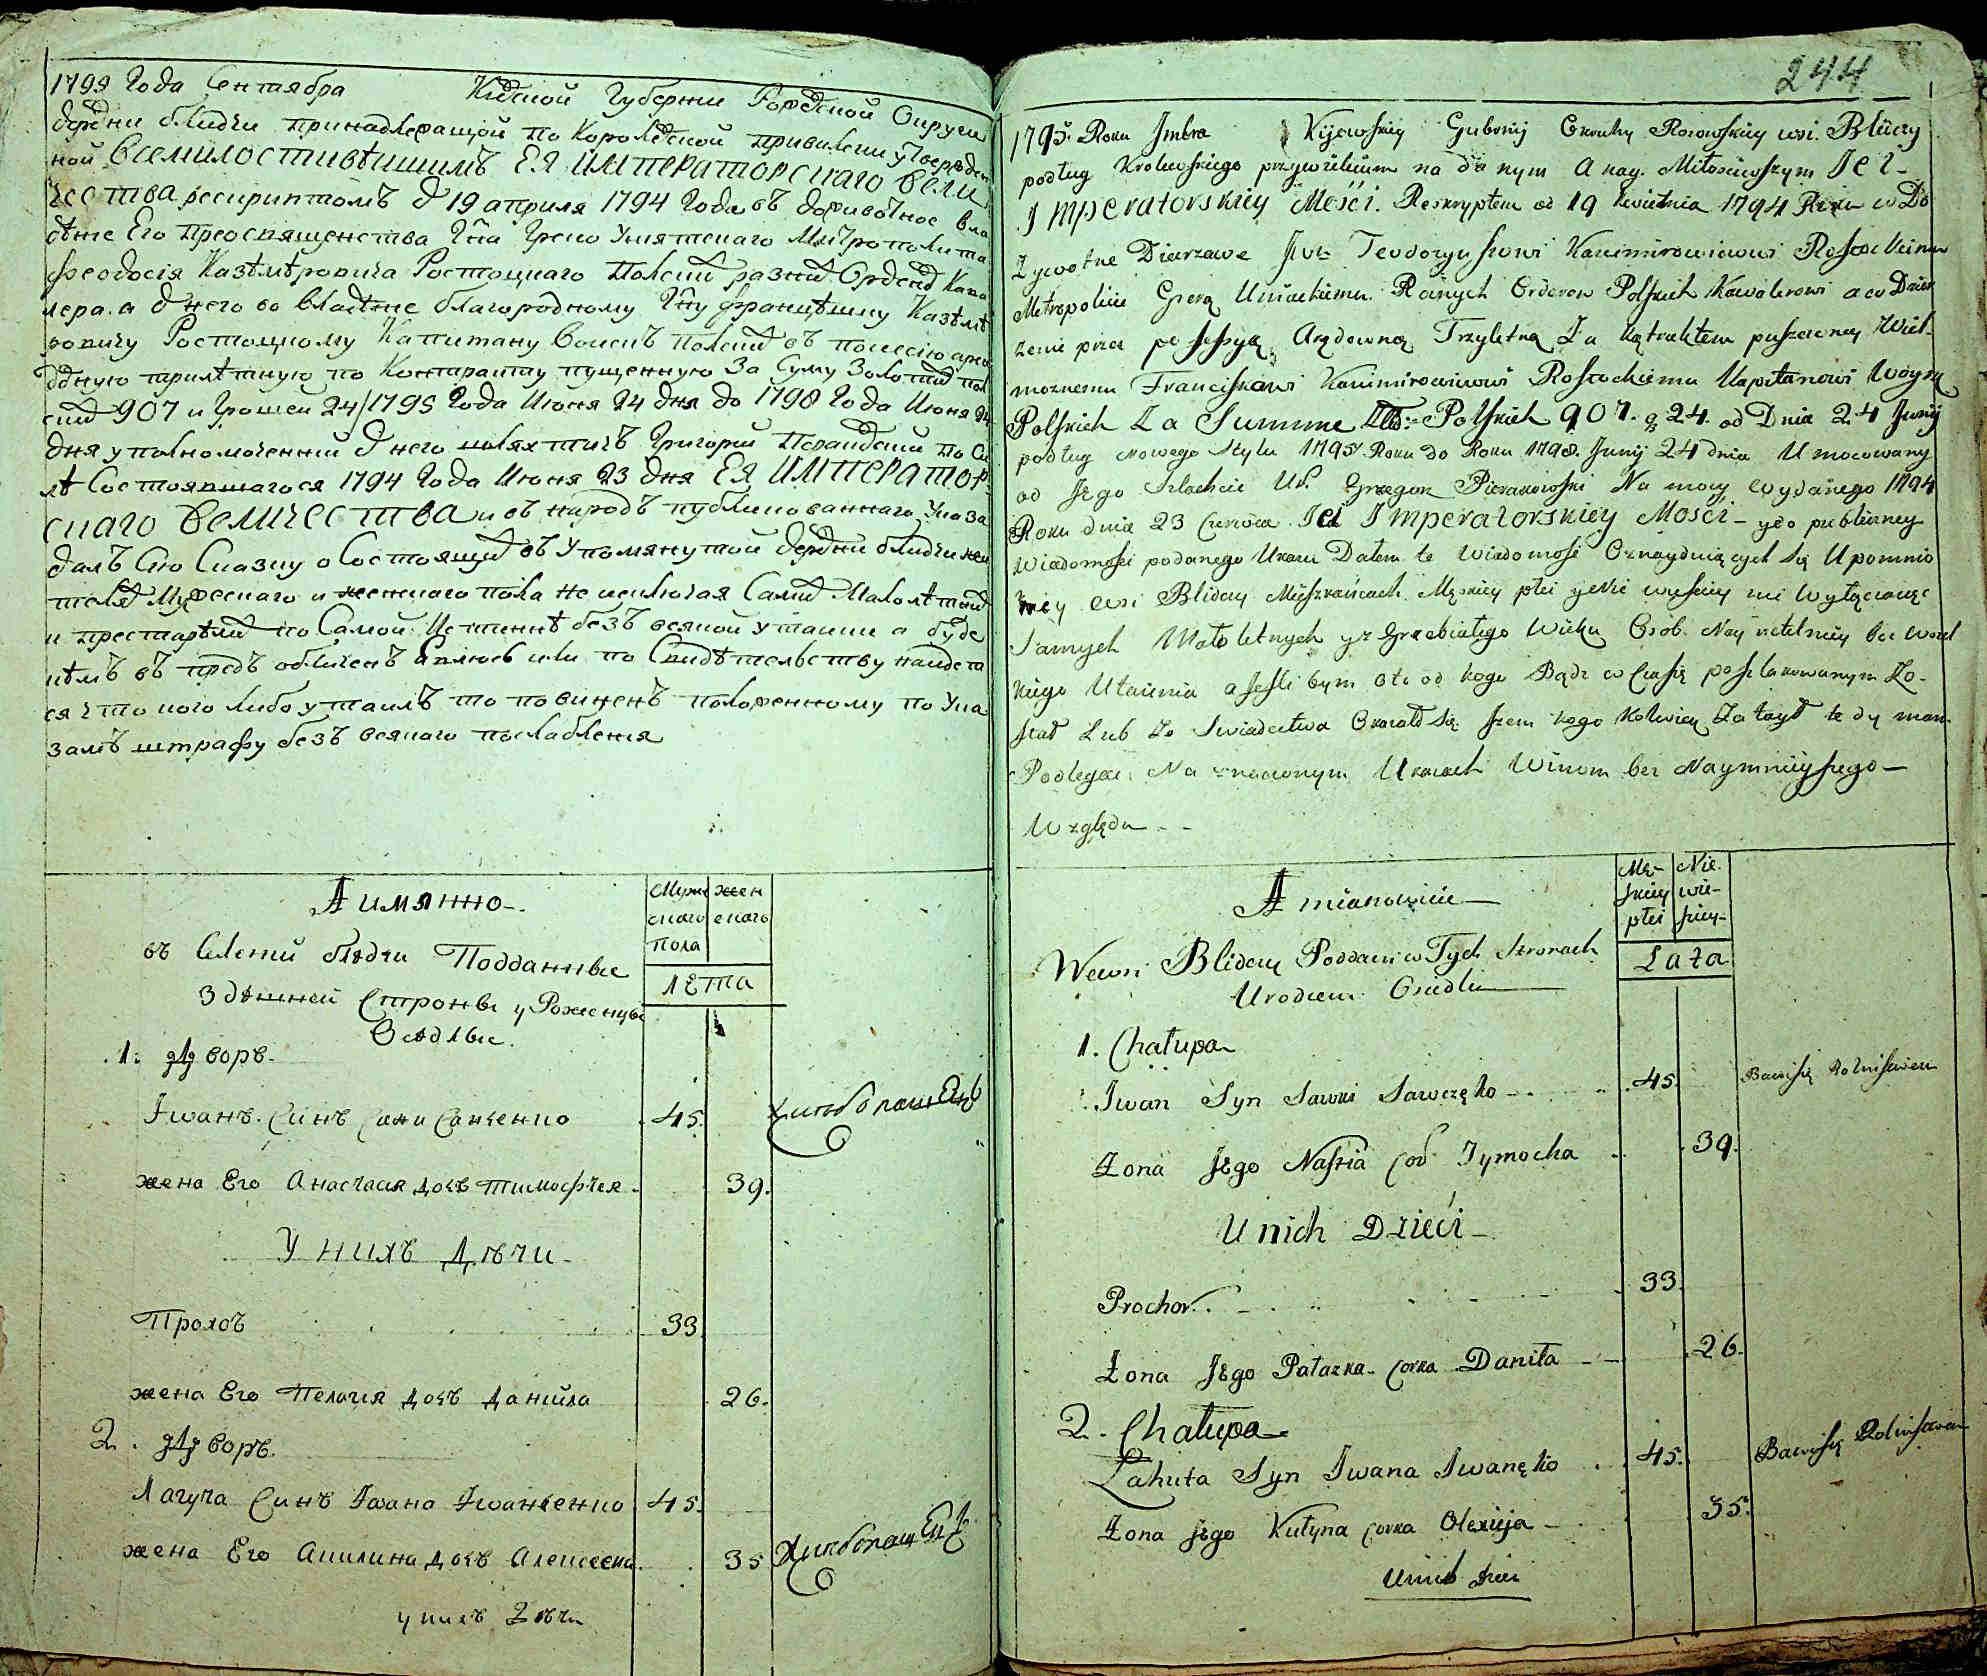 1795 Года Сентября Киевской Губернии Округи
деревни блидчи принадлежащой по Королевской привилегии
ной Всемилостивѣишимъ ЕЯ ИМПЕРАТОРСКАГО Вели
чества рескриптомъ 19 апреля 1794 Года въ доживотное вла
дѣние Его Преосвященства Гна Греко Униятскаго Митрополита
Феодосія Казѣмѣровича Ростоцкаго Полских разних Орденов Кава
лера. а от него во владѣние благородному Гну Францѣшку Казѣмѣ
ровичу Ростоцкому Капитану Воискъ полских въ посесию аре
довную трилѣтную по Контракту пущенную За Суму Золотих пол
ских 907 и Грошеи 24/1795 Года Июня 24 дня до 1798 Года Июня 24
дня уполномоченний от него шляхтичъ Григорий по Си
лѣ Состоявшагося 1794 Года Июня 23 дня ЕЯ ИМПЕРАТОР
СКАГО ВЕЛИЧЕСТВА и въ народъ публикованнаго Указа
далъ Сию Сказку о Состоящих въ упомянутой деревни блидчи жи
телях Мужескаго и женскаго пола не исключая Самих Малолѣтних
и престарѣлих по Самой Истиннѣ безъ всякой утаики а буде
кѣмъ въ предъ обличенъ явлюсь или по Свидѣтелству наидет
ся что кого либо утаилъ то повиненъ положенному по Ука
замъ штрафу безъ всякаго послабления
А имянно
Мужескаго пола
женскаго
въ Селении блидчи Подданние
здѣшней Стронъ уроженцы
Осѣдлые.
лѣта
1. дворъ.
Иванъ. Синъ Сави Савченко 45. хлибопашецъ
жена Его Анастасия дочъ тимофѣея 39.
У нихъ дѣти
Прохоъ 33.
жена Его Пелагия дочъ данийла 26.
2. дворъ.
Лагута Синъ Ивана Иваненко 45.
жена Его Акилина дочъ Алексеева 35 Хлибопашецъ
у нихъ дѣти
244
1795. Roku Kijowskiey Gubernij Okruhy wsi. Blidczy
podług Krolewskiego przywilieium na danym A nay. Miłosciwszym Jei
Jmperatorskiey Mości. Reskryptem od 19 kwietnia 1794 Roku w Do
Zywotne Dierzawe Teodozyuszowi Kazimirowiczowi Rostockiemu
Metropolicie Greco Uniackiemu Rożnych Orderow Polskich Kawalerowi a w Dzier
żenie przez possesyą Arędowną Trzyletną Za Kątraktem puszczoney Wiel
możnemu Franciszkowi Kazimirowiczowi Rostockiemu Kapitanowi Woysk
Polskich Za Summe Zło: Polskich 907. g 24. od Dnia 24 Junij
podług nowego Stylu 1795. Roku do Roku 1798. Junij 24 dnia Umocowany
od Jego Szlachcic Ur. Grzegorz Na mocy wydanego 1794
Roku dnia 23 Czerwca Jei Jmperatorskiey Mosci y do publiczney
Wiadomości podanego Ukazu Dałem te Wiadomość Oznayduiących się Upomnio
ney wsi Blidczy Mieszkańcach Męskiey płci y Nie wieściey nie wyłączaiąc
Samych Małoletnych y z Grzebiałego Wieku Osob. Nay rzetelniey bez wszel
kiego Utaienia a jesli bym oto od kogo Bądz w Czasie poszlakowanym Zo-
stał Lub Ze Swiadectwa Okazało się żem kogo kolwiek Zataył te dy mam
Podlegac Na znaczonym Ukazach Winom bez Naymnieyszego
Względu
A mianowicie
Męskiey płci
Niewieściey
We wsi Blidczy Poddani w Tych Stronach
Urodzeni Osiedli
Lata
1. Chałupa
Iwan Syn Sawki Sawczęko 45. Bawi się Rolnistwem
Żona Jego Nastia Cor Tymocha 39.
U nich Dzieci
Prochor. 33.
Żona Jego Pałazka Corka Daniła 26.
2. Chałupa
Łahuta Syn Iwana Iwanęko 45. Bawi się Rolnistwem
Żona jego Kułyna corka Olexieja 35.
U nich dzieci